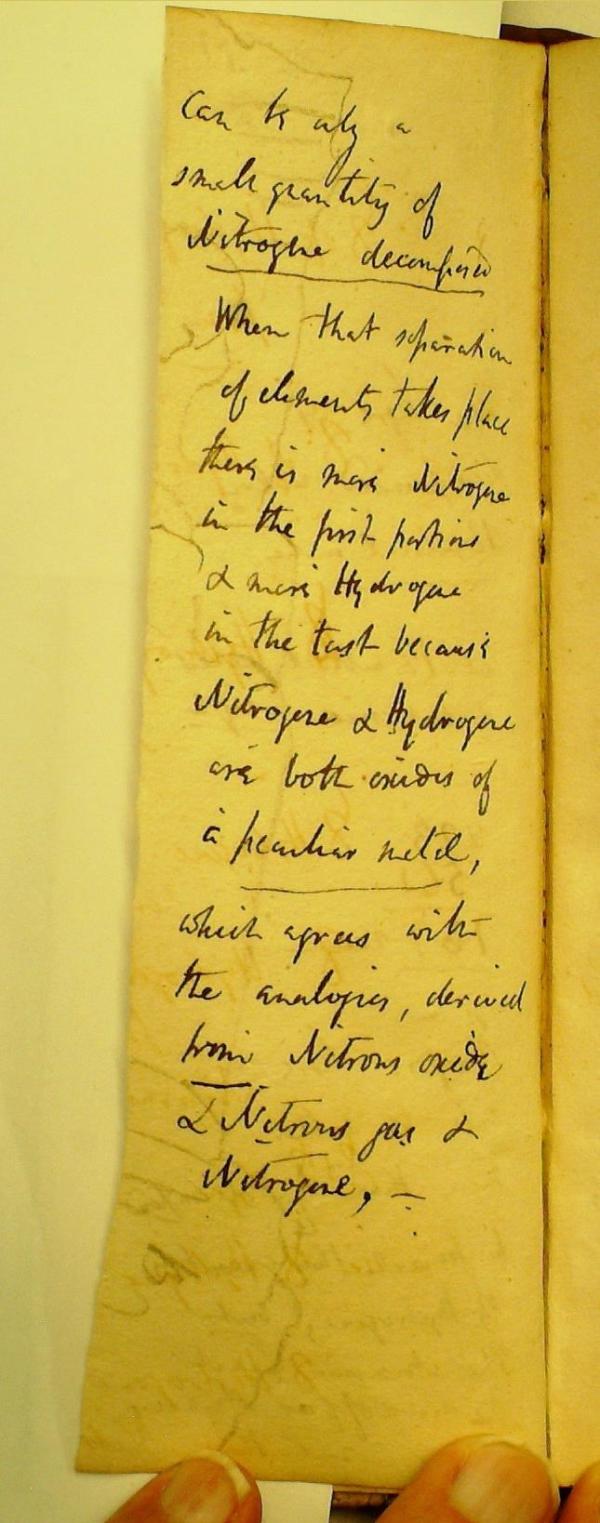 can be only a
small quantity of
Nitrogene decomposed
When that separation
of elements takes place
there is more Nitrogene
in the first portions
& more Hydrogene
in the last because
Nitrogene & Hydrogene
are both oxides of
a peculiar metal,
which agrees with
the analogies, derived
from Nitrous oxide
& Nitrous gas &
Nitrogene, –